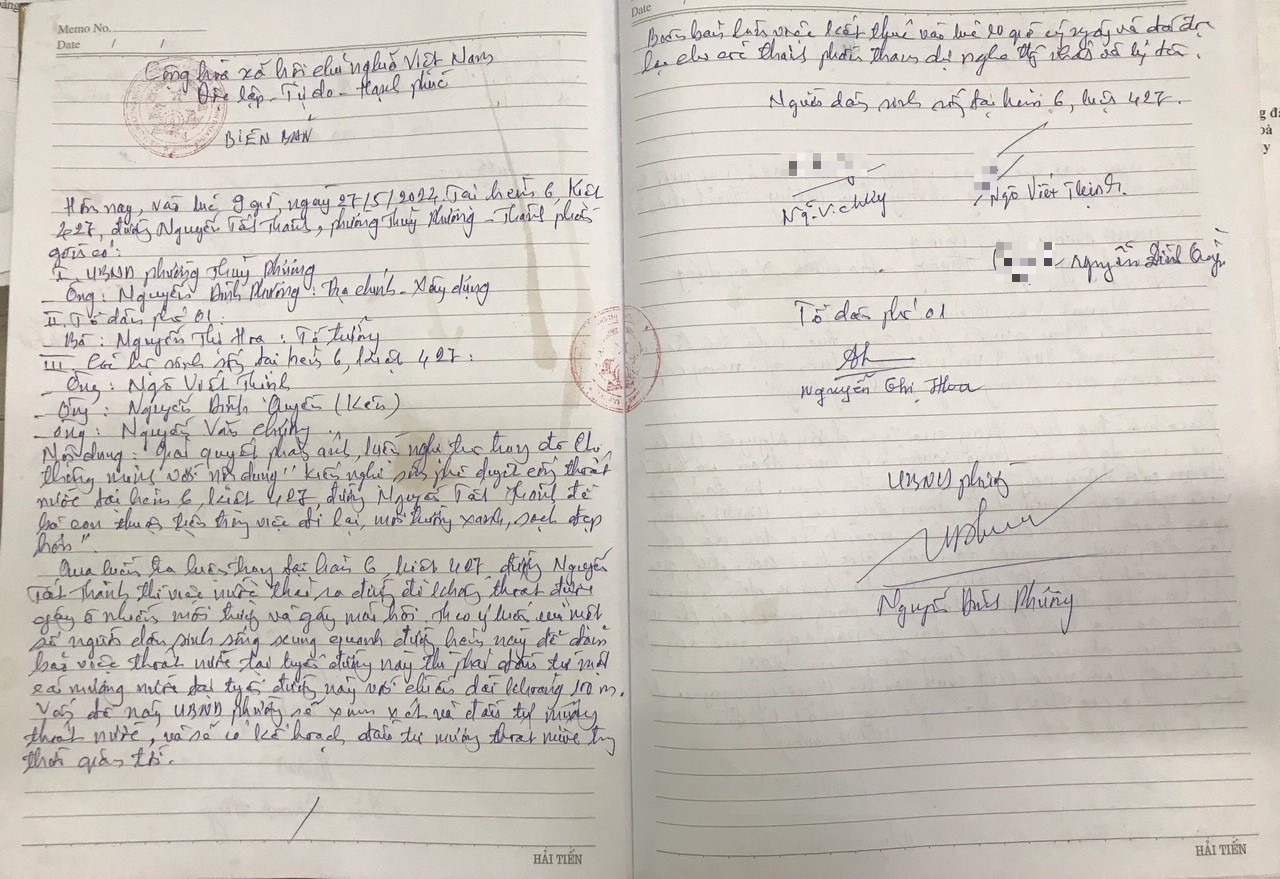 Memo No.
Date / /
Cộng hoà xã hội chủ nghĩa Việt Nam
Độc lập - Tự do - Hạnh phúc
BIÊN BẢN
Hôm nay, vào lúc 9 giờ, ngày 27/5/2024. Tại hẻm 6, Kiệt
427, đường Nguyễn Tất Thành, phường Thuỷ Phương - Thành phần
gồm có:
I. UBND phường Thuỷ Phương
- Ông: Nguyễn Đình Phương: Địa chính - Xây dựng
II. Tổ dân phố 01.
- Bà: Nguyễn Thị Hoa: Tổ trưởng
III. Các hộ sinh sống tại hẻm 6, kiệt 427:
- Ông: Ngô Viết Thịnh
- Ông: Nguyễn Đình Quyền (Kén)
- Ông: Nguyễn Văn
Nội dung: Giải quyết phản ánh, kiến nghị trên trang đô thị
thông minh với nội dung "Kiến nghị phê duyệt cống thoát
nước tại hẻm 6, kiệt 427 đường Nguyễn Tất Thành để
bà con thuận tiện trong việc đi lại, môi trường xanh, sạch đẹp
hơn".
Qua kiểm tra hiện nay tại hẻm 6, kiệt 427 đường Nguyễn
Tất Thành thì việc nước thải ra đường đi không thoát được
gây ô nhiễm môi trường và gây mùi hôi. Theo ý kiến của một
số người dân sinh sống xung quanh đường hẻm này để đảm
bảo việc thoát nước tại tuyến đường này thì phải đầu tư một
cái mương nước tại tuyến đường này với chiều dài khoảng 100 m.
Vấn đề này UBND phường sẽ xem xét và đầu tư mương
thoát nước, và sẽ có kế hoạch đầu tư mương thoát nước trong
thời gian tới.
HẢI TIẾN
Date
Biên bản làm việc kết thúc vào lúc 10 giờ cùng ngày và đã đọc
lại cho các thành phần tham dự nghe thống nhất và ký tên.
Người dân sinh sống tại hẻm 6, kiệt 427.
Ngô Viết Thịnh.
Nguyễn Đình Quyền
Tổ dân phố 01
Nguyễn Thị Hoa
UBND phường
Nguyễn Đình Phương
HẢI TIẾN